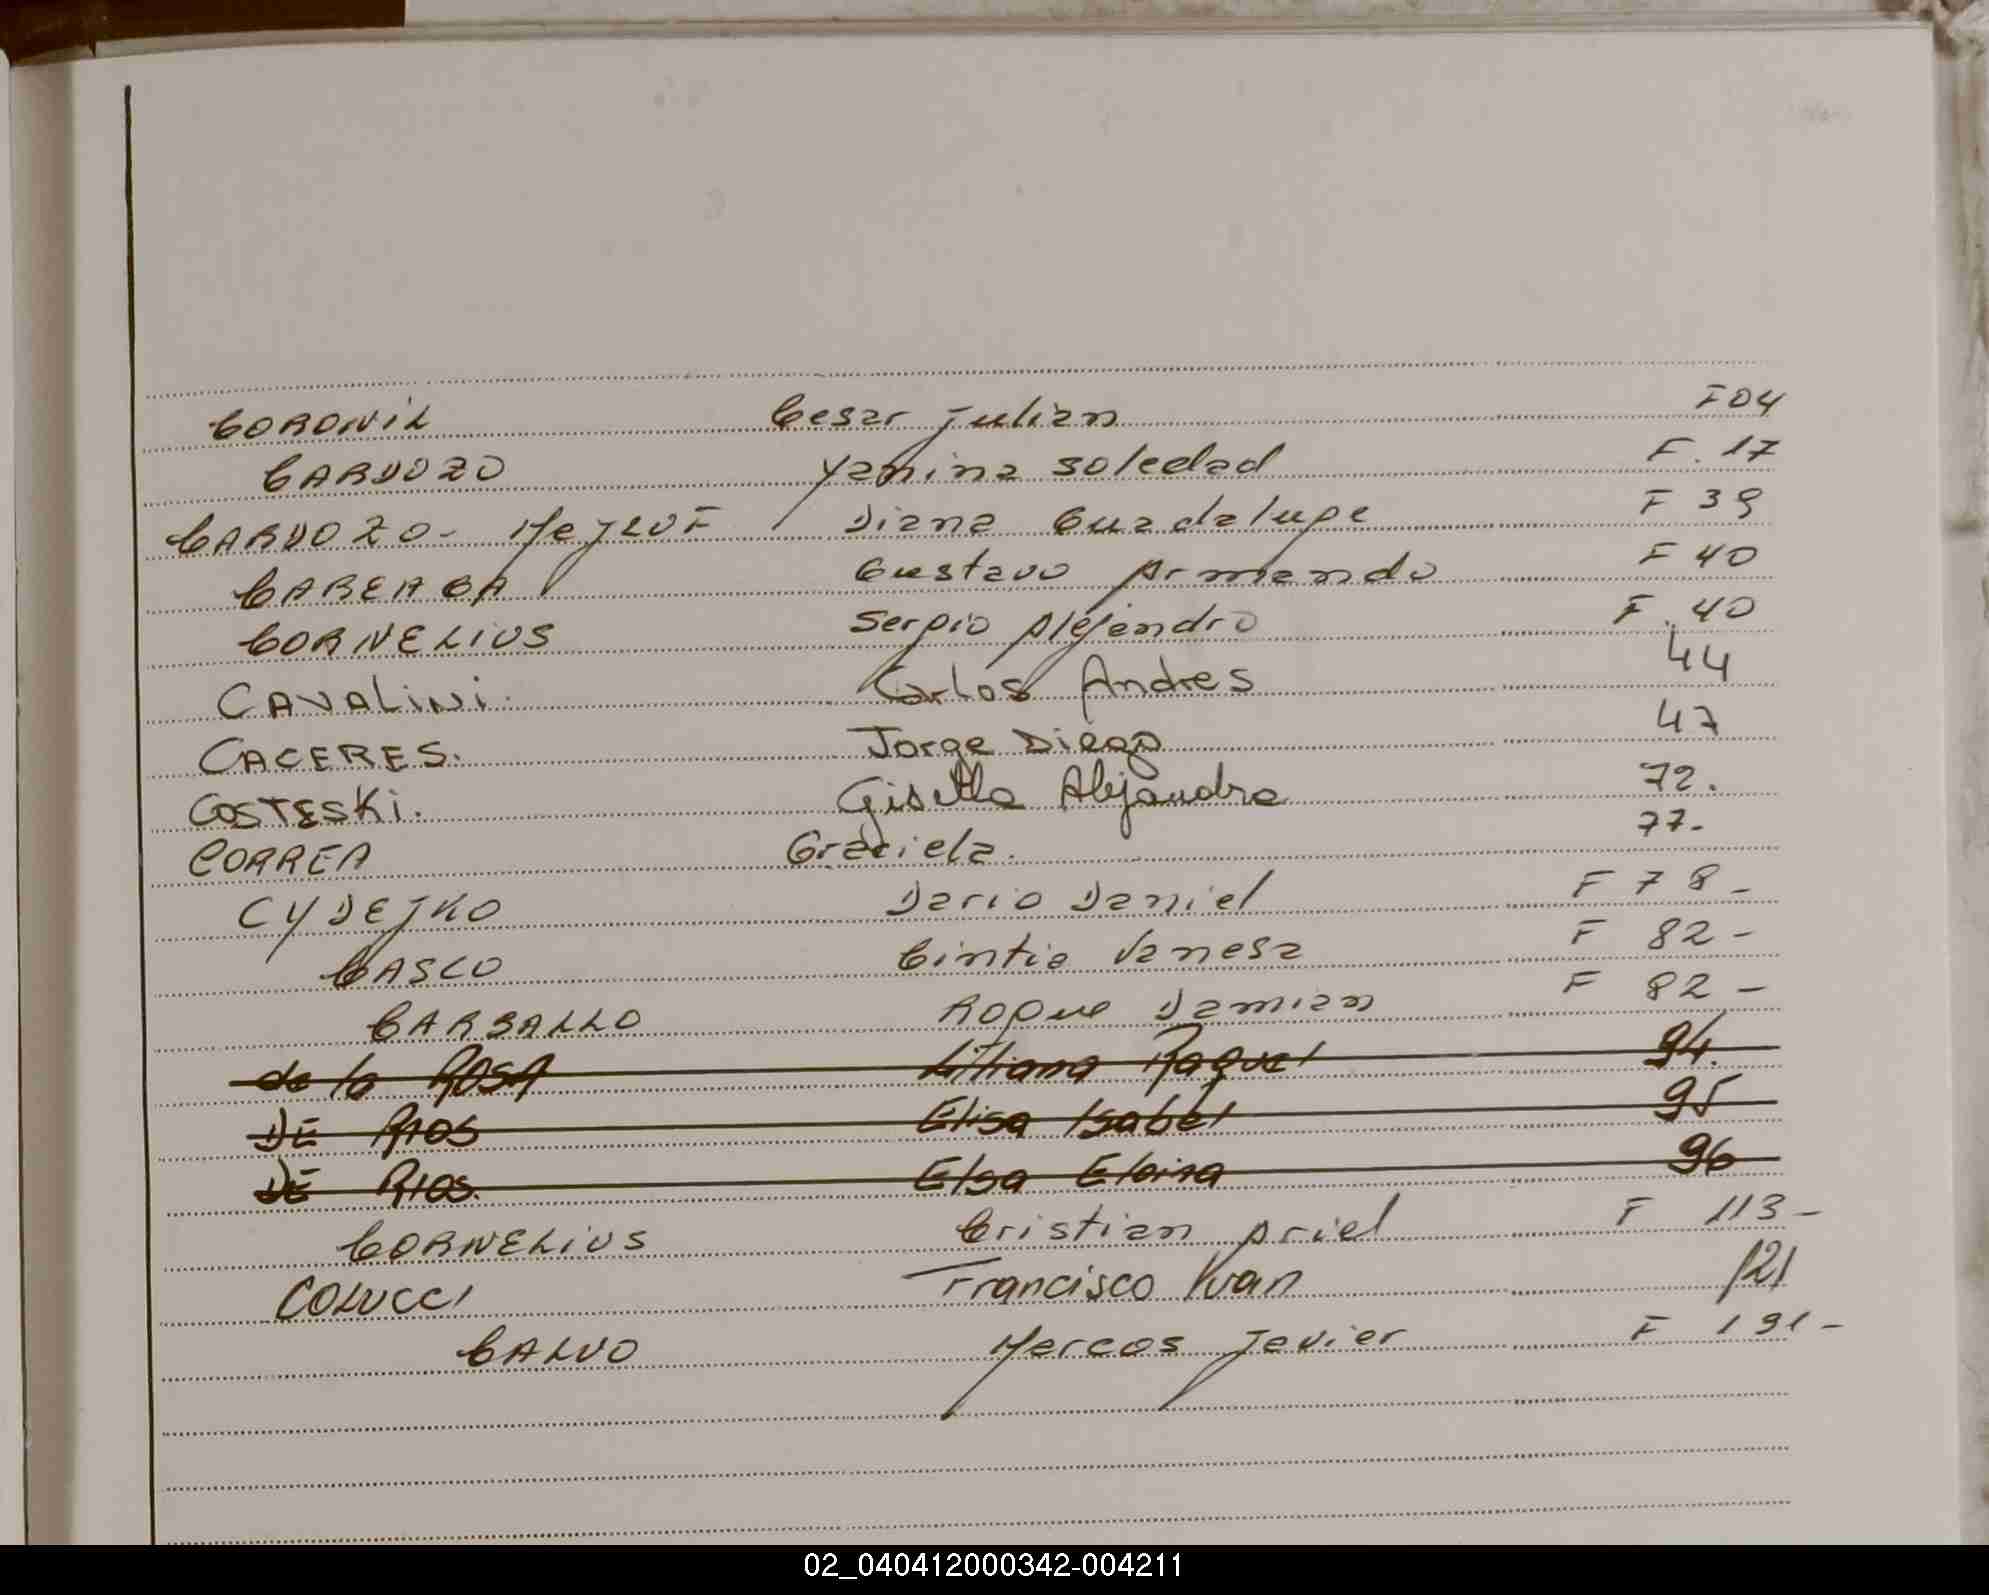 CORONIL Cesar Julian F04
CARDOZO Yanina Soledad F. 17
CARDOZO - Diana Guadalupe F 39
CAREAGA Gustavo Armando F 40
CORNELIUS Sergio Alejandro F. 40
CAVALINI. Carlos Andres 44
CACERES. Jorge Diego 47
COSTESKI. Gisella Alejandra 72.
CORREA Graciela. 77-
CYDEJKO Dario Daniel F 78-
CASCO Cintia Vanesa F 82-
CARBALLO Roque Damian F 82-
de la ROSA Liliana Raquel 94.
DE RIOS Elisa Isabel 95
DE RIOS. Elsa 96
CORNELIUS Cristian Ariel F 113-
COLUCCI Francisco Ivan 121
CALVO Marcos Javier F 191-
02_040412000342-004211